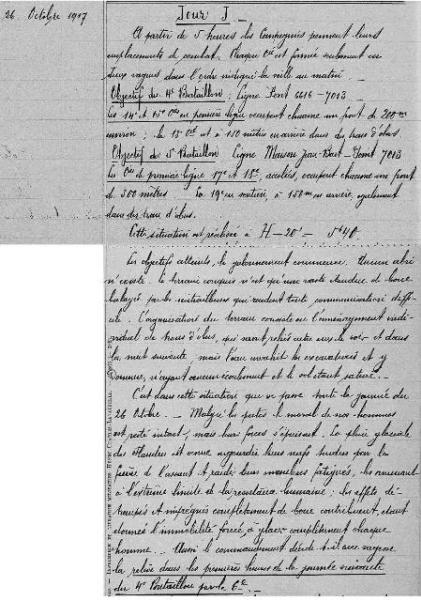 26 Octobre 1917
Jour J
A partir de 5 heures les Compagnies prennent leurs
emplacements de combat. Chaque Cie est formée seulement en
deux vagues dans l'ordre indiqué la veille au matin.
Objectif du 4e Bataillon : Ligne Point 6616 - 7013
Les 14e et 15e Cies en première ligne occupent chacune un front de 200m
environ ; la 13e Cie est à 150 mètres en arrière dans des trous d'obus
Objectif du 5e Bataillon Ligne Maison Jean-Bart - Point 7013
Les Cies de première ligne 17e et 18e, accolées, occupent chacune un front
de 300 mètres La 19e en soutien, à 150m en arrière, également
dans des trous d'obus.
Cette situation est réalisée à H - 20' - 5h40.
Les objectifs atteints, le jalonnement commence. Aucun abri
n'existe. Le terrain conquis n'est qu'une vaste étendue de boue
balayée par les mitrailleuses qui rendent toute communication diffi-
cile. L'organisation du terrain consiste en l'aménagement indi-
viduel de trous d'obus, qui sont reliés entre eux le soir et dans
la nuit suivante mais l'eau envahit les excavations et y
demeure, n'ayant aucun écoulement et le sol étant
C'est dans cette situation que se passe toute la journée du
26 Octobre. - Malgré les pertes le moral de nos hommes
est resté intact, mais leurs forces s'épuisent. La pluie glaciale
des Flandres est venue engourdir leurs nerfs tendus par la
de l'assaut et raidir leurs membres fatigués, les amenant
à l'extrême limite de la résistance humaine ; les effets dé-
trempés et imprégnés complètement de boue contribuent, étant
donnée l'immobilité forcée, à glacer complètement chaque
homme. - Aussi le commandement décide-t-il avec
la relève dans les premières heures de la journée suivante
du 4e Bataillon par le 6e